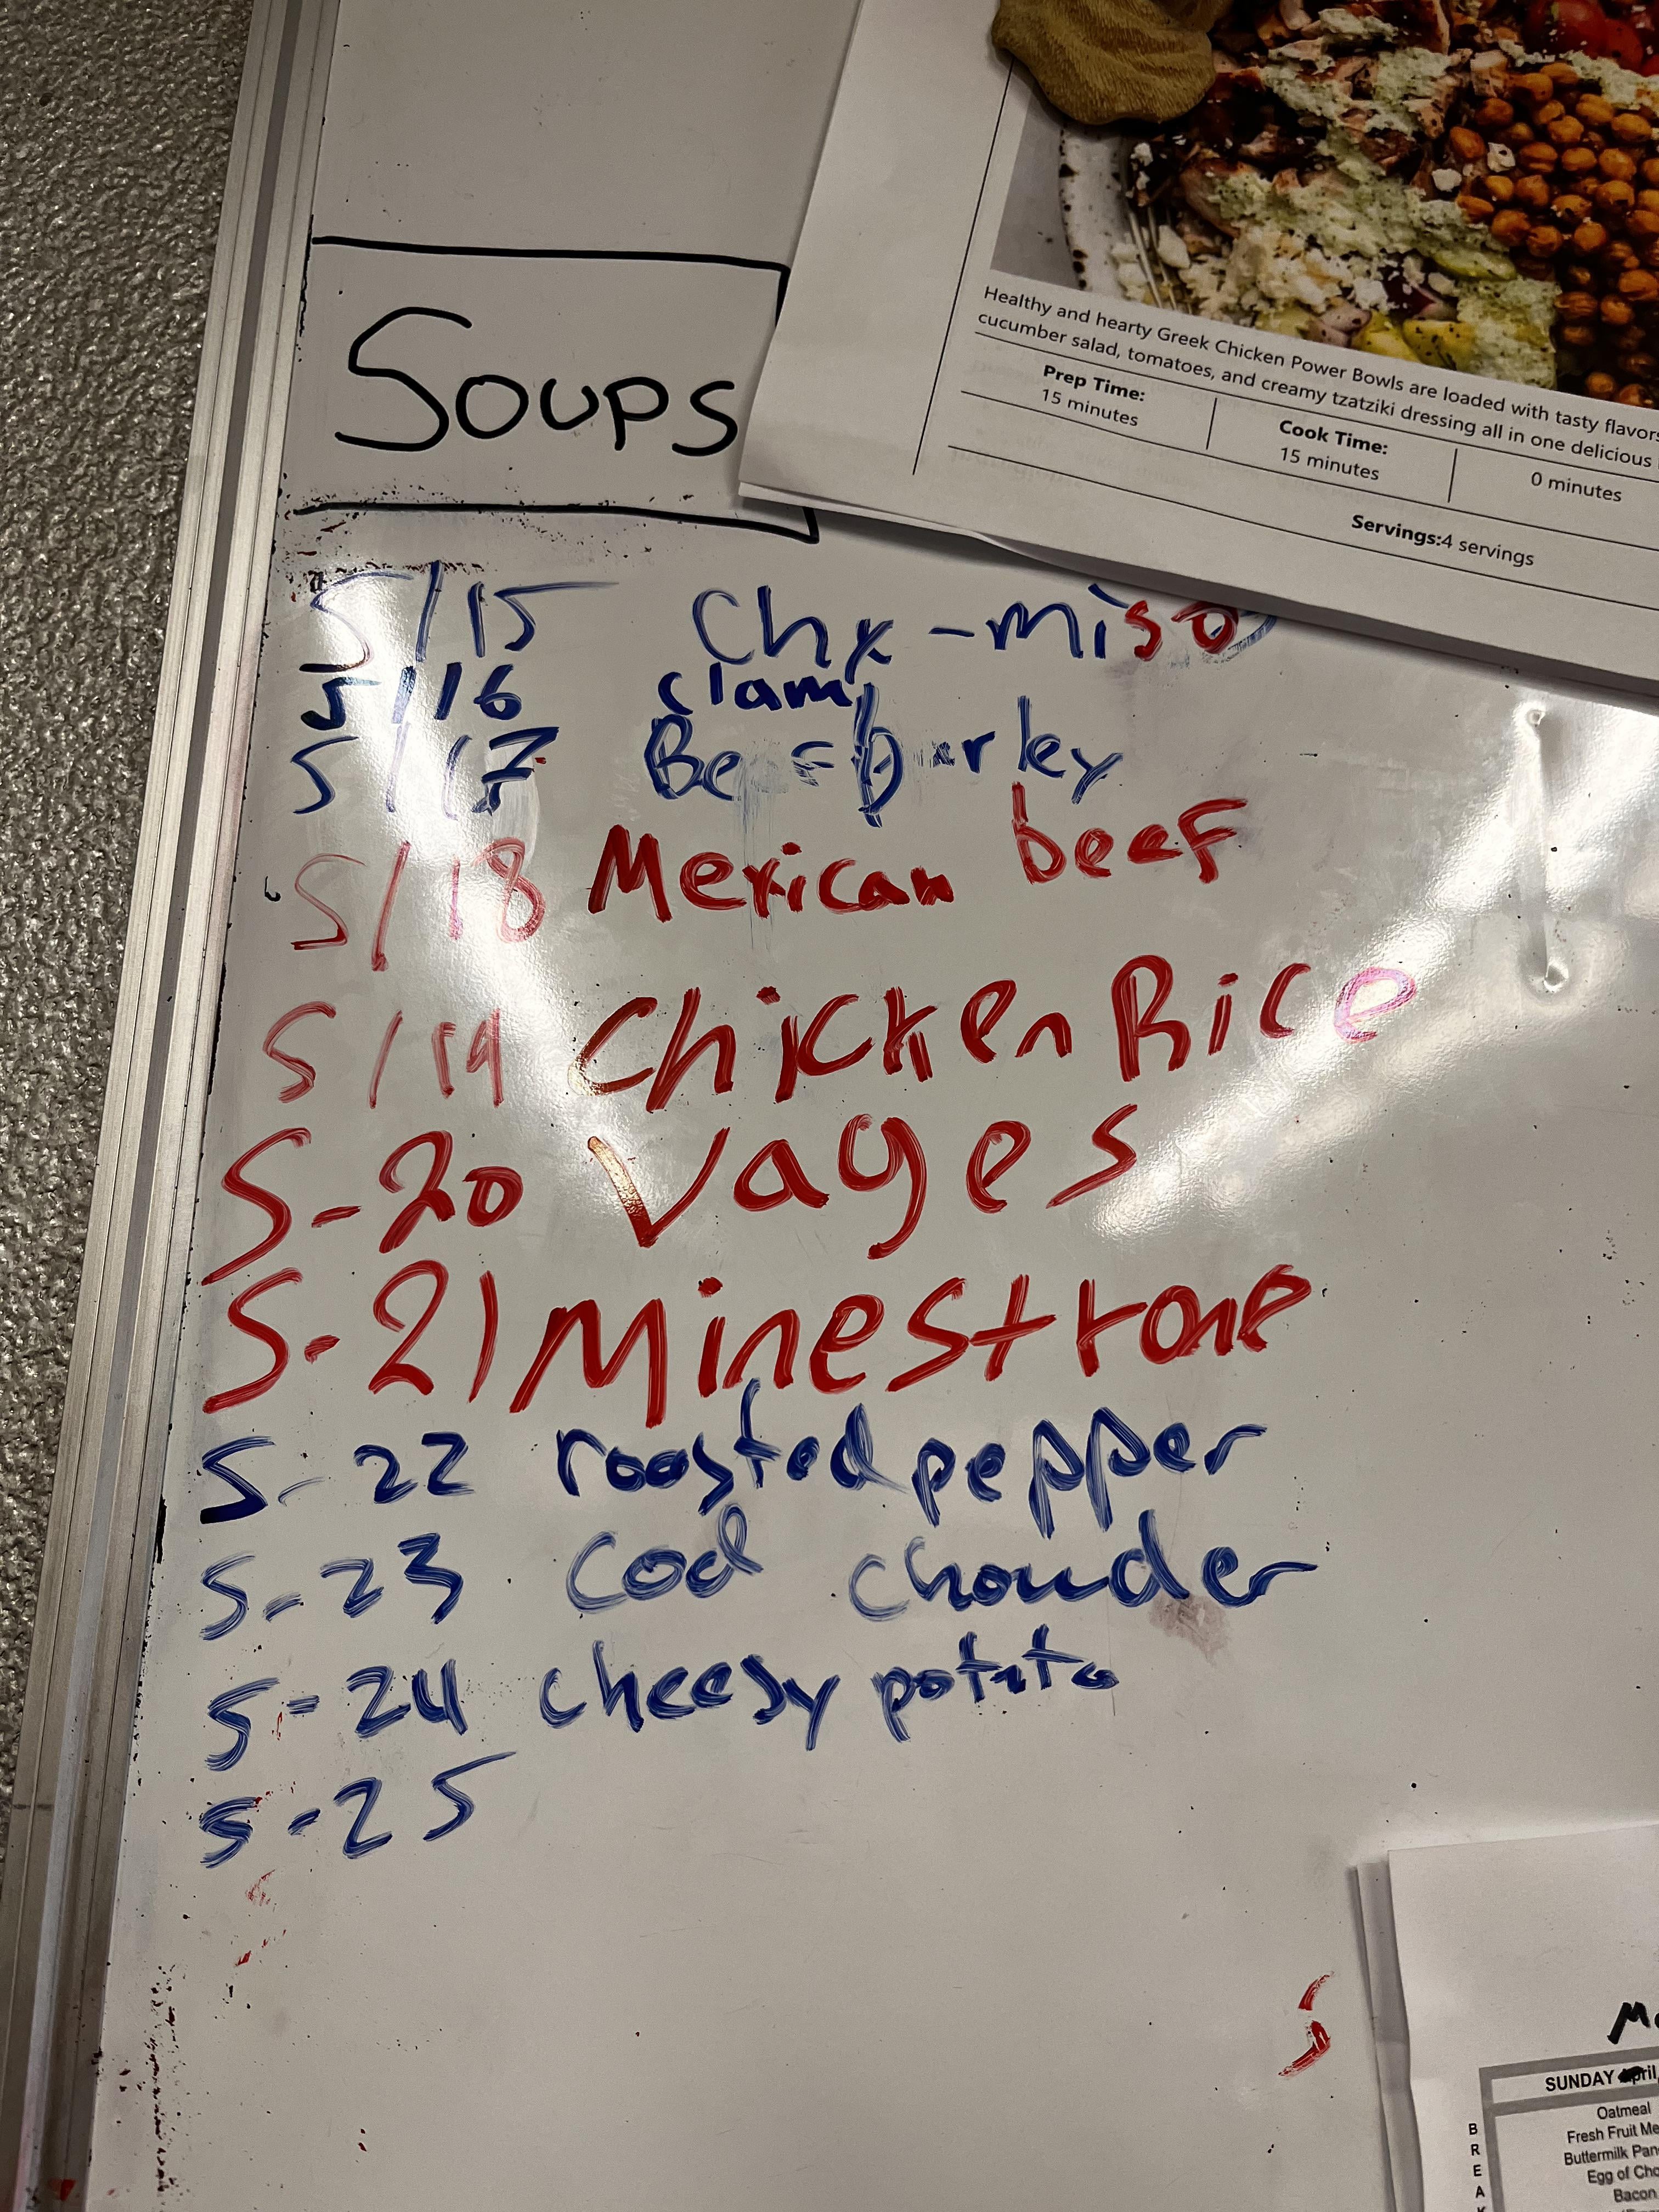 Healthy and hearty Greek Chicken Power Bowls are loaded with tasty flavors
cucumber salad, tomatoes, and creamy tzatziki dressing all in one delicious
Prep Time:
15 minutes
Cook Time:
15 minutes
0 minutes
Servings:4 servings
Soups
5/15 Chx-miso
5/16 clam
5/17 Beef barley
5/18 Mexican beef
5/19 Chicken Rice
5-20 Vages
5-21 Minestrone
5-22 roasted pepper
5-23 Cod chowder
5-24 cheesy potato
5-25
SUNDAY
Oatmeal
Fresh Fruit Me
Buttermilk Pan
Egg of Cho
Bacon
B
R
E
A